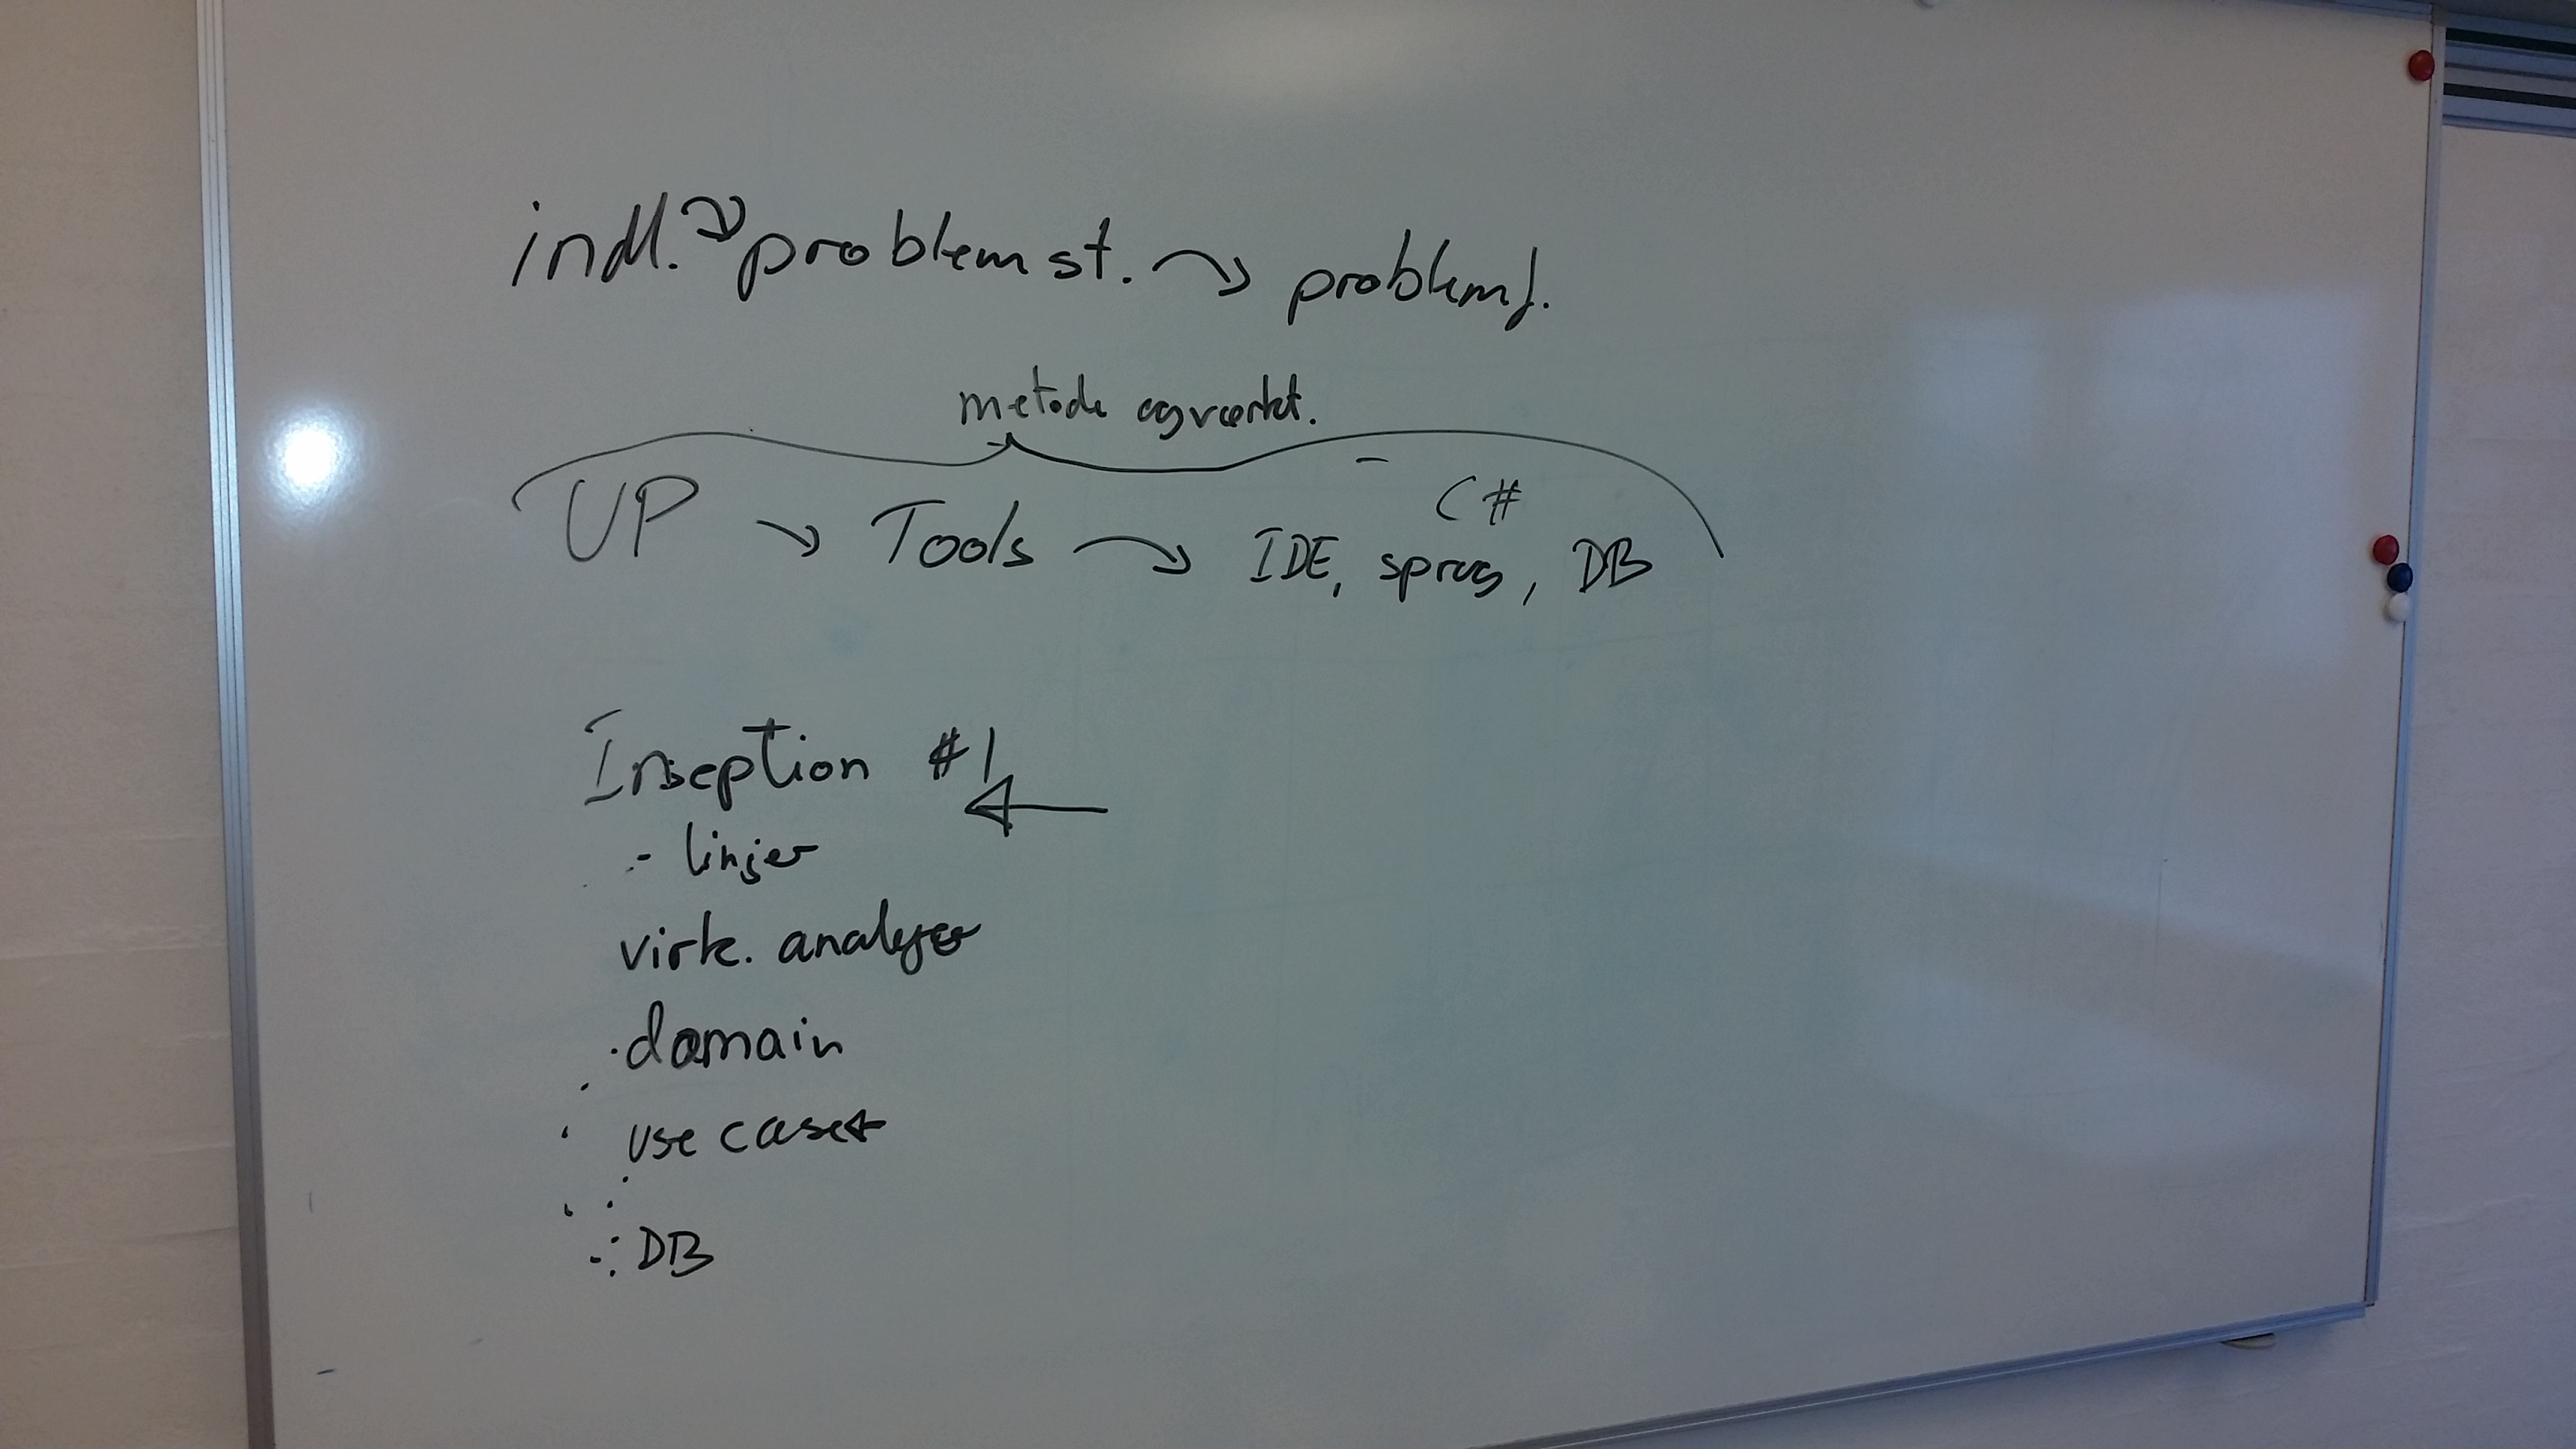 indl. problemst. problemf.
metode og værkt.
C#
UP Tools IDE, sprog, DB
Inseption #1
- linjer
virk. analyser
domain
use cases
DB